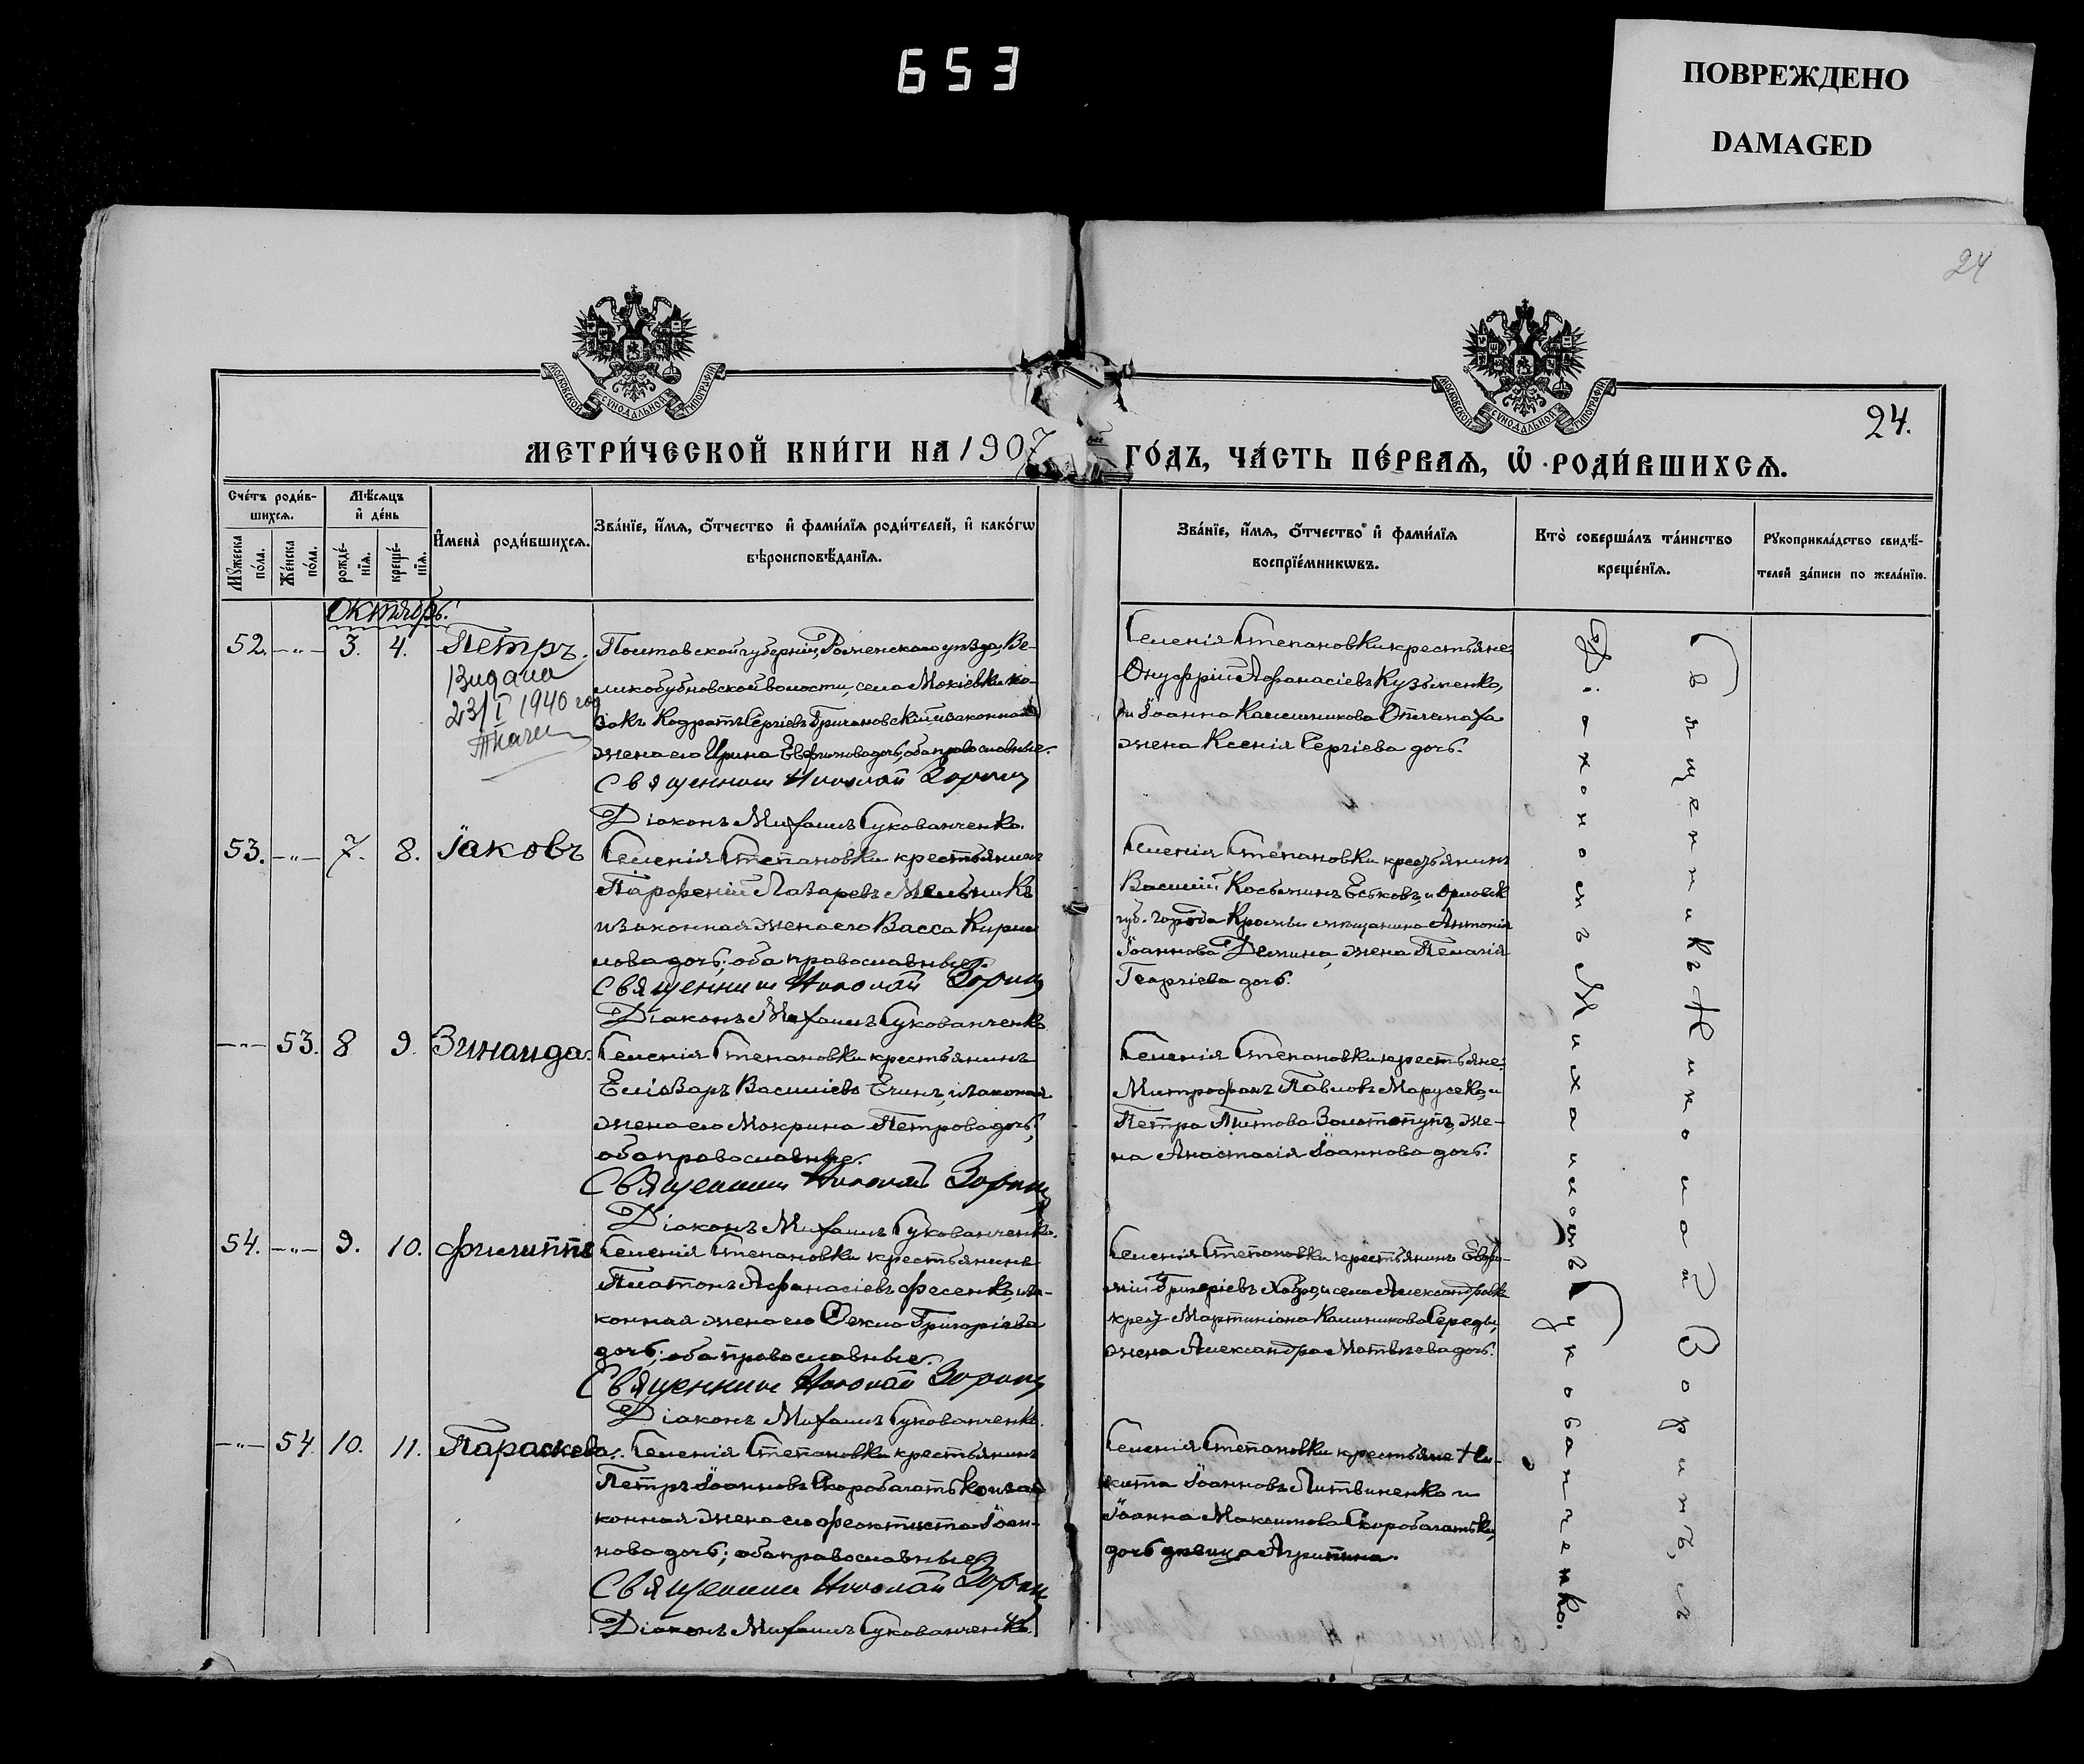 653
ПОВРЕЖДЕНО
DAMAGED
24
МОСКОВСКОЙ СѴНОДАЛЬНОЙ ТИПОГРАФІИ
МОСКОВСКОЙ СѴНОДАЛЬНОЙ ТИПОГРАФІИ
24.
МЕТРИ́ЧЕСКОЙ КНИ́ГИ НА 1907 ГО́ДЪ, ЧА́СТЬ ПЕ́РВАѦ, Ѡ РОДИ́ВШИХСѦ.
Сче́тъ роди́в-
шихсѧ.
Мꙋ́жеска по́ла.
Же́нска по́ла.
Мѣ́сѧцъ
и҆ де́нь
рожде́-
нїѧ.
креще́-
нїѧ.
И҆мена̀ роди́вшихсѧ.
Зва́нїе, и҆́мѧ, ѻ҆́тчество и҆ фами́лїѧ роди́телей, и҆ како́гѡ
вѣроисповѣ́данїѧ.
Зва́нїе, и҆́мѧ, ѻ҆́тчество и҆ фами́лїѧ
воспрїе́мникѡвъ.
Кто̀ соверша́лъ та́инство
креще́нїѧ.
Рꙋкоприкла́дство свидѣ́-
телей за́писи по жела́нїю.
Октябрь.
52. -"- 3. 4. Петръ.
Видана
23/I 1940 год
Полтавской губерніи, Роменскаго уѣзда, Ве-
ликобубновской волости, села Мокіевки ко-
закъ Кодратъ Сергіевъ Гричановскій и законная
жена его Ирина Евфимова дочь, оба православные.
Священникъ Николай Зоринъ
Діаконъ Михаилъ Сукованченко.
Селенія Степановки крестьяне:
Онуфрій Афанасіевъ Кузьменко,
и Іоанна Калинникова
жена Ксенія Сергіева дочь.
53. -"- 7. 8. Іаковъ
Селенія Степановки крестьянинъ
Парфеній Лазаревъ Мельникъ
и законная жена его Васса Кирил
лова дочь; оба православные.
Священникъ Николай Зоринъ
Діаконъ Михаилъ Сукованченко
Селенія Степановки крестьянинъ
Василій Косьминъ Еськовъ, и Орловск
губ. города Кромы мѣщанина Антонія
Іоаннова Демина, жена Пелагія
Георгіева дочь.
-"- 53. 8 9. Зинаида.
Селенія Степановки крестьянинъ
Еліазаръ Василіевъ Ечинъ, и законная
жена его Мокрина Петрова дочь,
оба православные.
Священникъ Николай Зоринъ
Діаконъ Михаилъ Сукованченко.
Селенія Степановки крестьяне:
Митрофанъ Павловъ Марусенко, и
Петра Титова Золотопупъ, же-
на Анастасія Іоаннова дочь.
54. -"- 9. 10. Филиппъ
Селенія Степановки крестьянинъ
Платонъ Афанасіевъ Фесенко, и за-
конная жена его Ѳекла Григоріева
дочь; оба православные.
Священникъ Николай Зоринъ
Діаконъ Михаилъ Сукованченко.
Селенія Степановки крестьянинъ Евфи-
мій Григоріевъ и села Александровки
крест. Мартиніана Калиникова Середы,
жена Александра Матвѣева дочь.
-"- 54. 10. 11. Параскева.
Селенія Степановки крестьянинъ
Петръ Іоанновъ Скоробагатько и за
конная жена его Феоктиста Іоан-
нова дочь; оба православные
Священникъ Николай Зоринъ
Діаконъ Михаилъ Сукованченко.
Селенія Степановки крестьяне Ни-
кита Іоанновъ Литвиненко и
Іоанна Максимова Скоробагатьки,
дочь дѣвица Агрипина.
Священникъ Николай Зоринъ, съ
Діакономъ Михаиломъ Сукованченко.